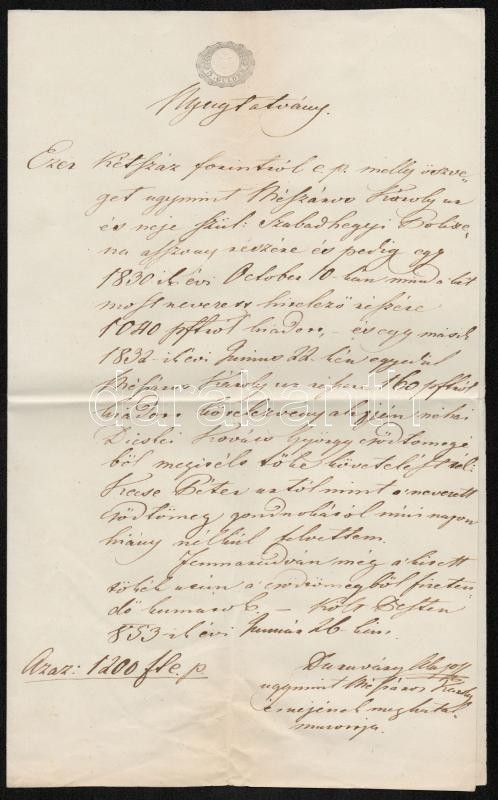 Nyugtatvány.
Ezer Kétszáz forintról c. p. melly össze=
get ugymint Mészáros Károly ur
és neje szül: Szabadhegyi Polixe=
na asszony részére és pedig egy
1830-ik évi October 10-kén mind a két
most nevezett hitelező részére
1040 pftról kiadott, – és egy másik
1832-ik évi Junius 22-kén egyedül
Mészáros Károly ur részére 160 pftról
kiadott kötelezvény alapján néhai
Kovács György csődtömegé
ből megitélt tőke követelést
Kecse Péter urtól mint a nevezett
csődtömeg gondnokától mai napon
hiány nélkül felvettem.
Fennmaradván még a kitett
tőkék után a csődtömegből fizeten=
dő kamatok. – Költ Pesten
853-ik évi Junius 26-kán.
Azaz: 1200 ft c. p
Daruváry Alajos
ugymint Mészáros Károly
és nejének meghatal=
mazottja.
darabanth